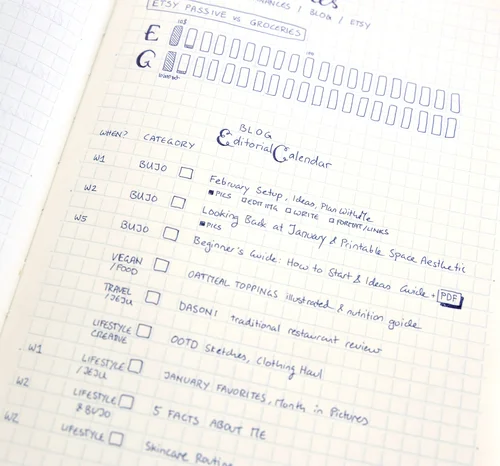 / BLOG / ETSY
ETSY PASSIVE vs GROCERIES
E
G
BLOG
Editorial Calendar
WHEN? CATEGORY
W1 BUJO February Setup, Ideas, Plan With Me
PICS EDITING WRITE FORMAT/LINKS
W2 BUJO Looking Back at January & Printable Space Aesthetic
PICS
W5 BUJO Beginner's Guide: How to Start & Ideas Guide + PDF
VEGAN /FOOD OATMEAL TOPPINGS illustrated & nutrition guide
TRAVEL /JEJU DASONI traditional restaurant review
LIFESTYLE CREATIVE OOTD Sketches, Clothing Haul
W1 LIFESTYLE /JEJU JANUARY FAVORITES, Month in Pictures
W2 LIFESTYLE & BUJO 5 FACTS ABOUT ME
W2 LIFESTYLE Skincare